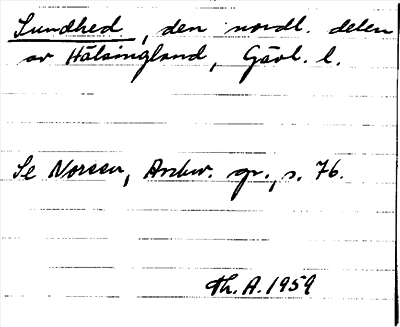 Sundhed, den nordl. delen
av Hälsingland, Gävl. l.
Se Noreen, Arkiv. gr., s. 76.
Th. A. 1959